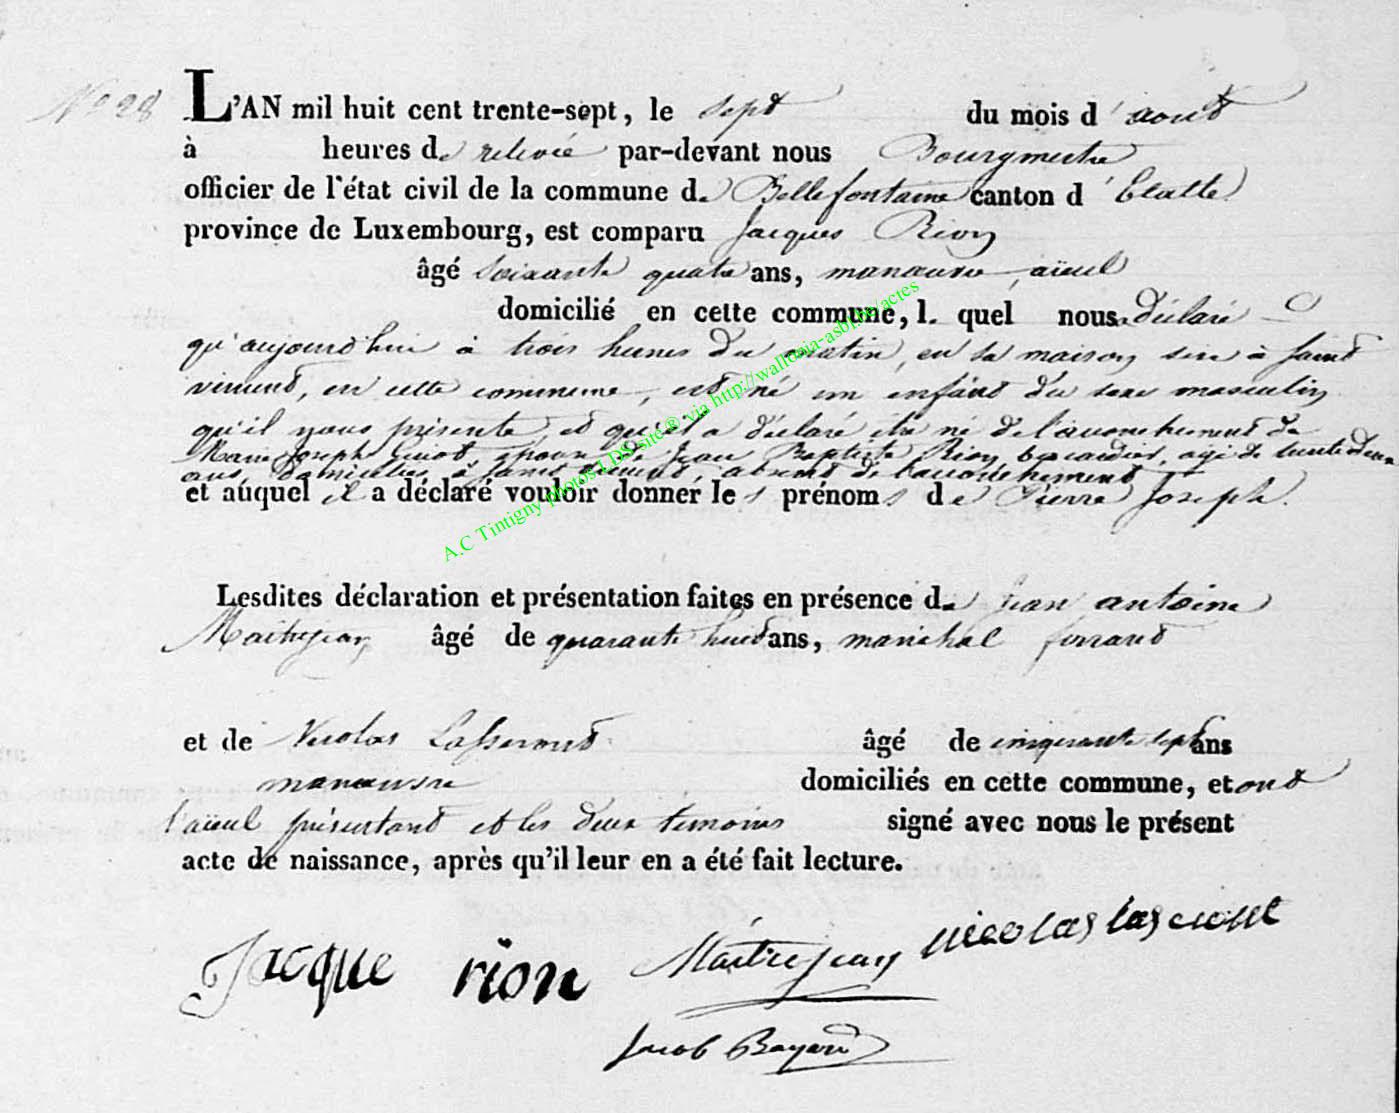 N° 28
L'AN mil huit cent trente-sept, le sept du mois d'août
à heures de relevée par-devant nous Bourgmestre
officier de l'état civil de la commune de Bellefontaine canton d'Etalle
province de Luxembourg, est comparu Jacques Rion
âgé soixante quatre ans, manœuvre, aïeul
domicilié en cette commune, lequel nous a déclaré
qu'aujourd'hui à trois heures du matin, en sa maison sise à Saint
vincent, en cette commune, est né un enfant du sexe masculin
qu'il nous présente, et qu'il a déclaré être né de l'accouchement de
Marie Joseph épouse de Jean Baptiste Rion, agé de trente deux
ans, domiciliés à Saint vincent, absent de l'accouchement
et auquel il a déclaré vouloir donner les prénoms de Pierre Joseph.
A.C Tintigny photos LDS site® via http://wallonia-asbl.be/actes
Lesdites déclaration et présentation faites en présence de Jean antoine
Maitrejean âgé de quarante huit ans, maréchal ferrant
et de Nicolas Lasseront âgé de cinquante sept ans
manœuvre domiciliés en cette commune, et ont
l'aïeul présentant et les deux témoins signé avec nous le présent
acte de naissance, après qu'il leur en a été fait lecture.
Jacque rion Maitrejean nicolas
Jacob Bayard